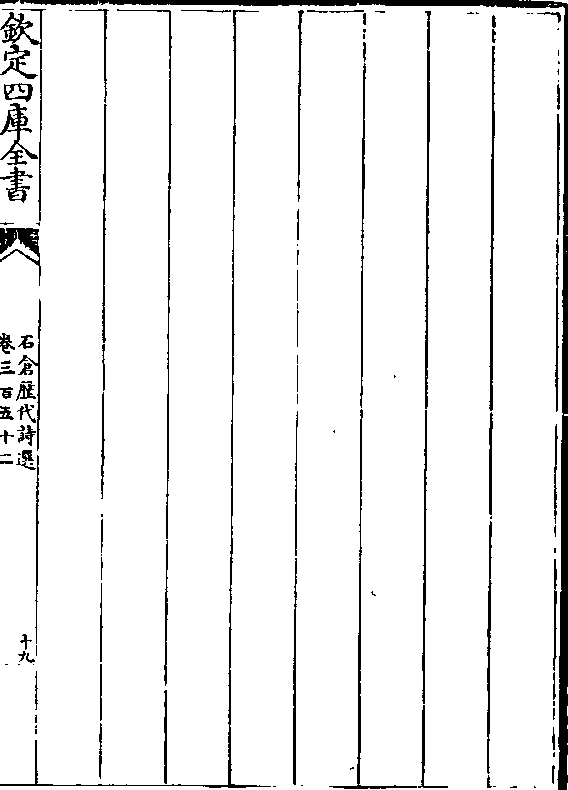 欽定四庫全書
石倉歷代詩選
卷三百五十二
十九